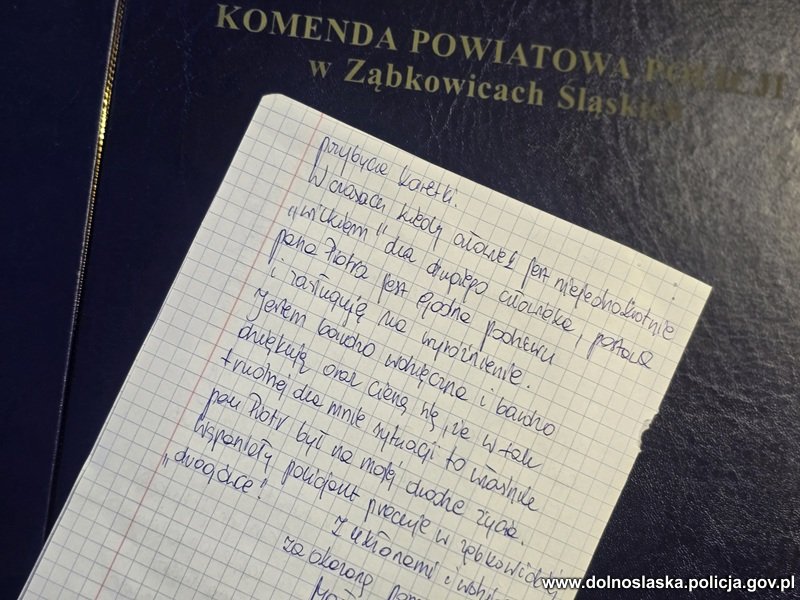 KOMENDA POWIATOWA POLICJI
w Ząbkowicach Śląskich
przybycia karetki.
W czasach kiedy człowiek jest niejednokrotnie
„wilkiem" dla drugiego człowieka, postawa
pana Piotra jest godna podziwu
i zasługuję na wyróżnienie.
Jestem bardzo wdzięczna i bardzo
dziękuję oraz cieszę się, że w tak
trudnej dla mnie sytuacji to właśnie
pan Piotr był na mojej drodze życia.
Wspaniały policjant pracuje w ząbkowickiej
„drogówce"!
Z ukłonami i
za okazaną
www.dolnoslaska.policja.gov.pl